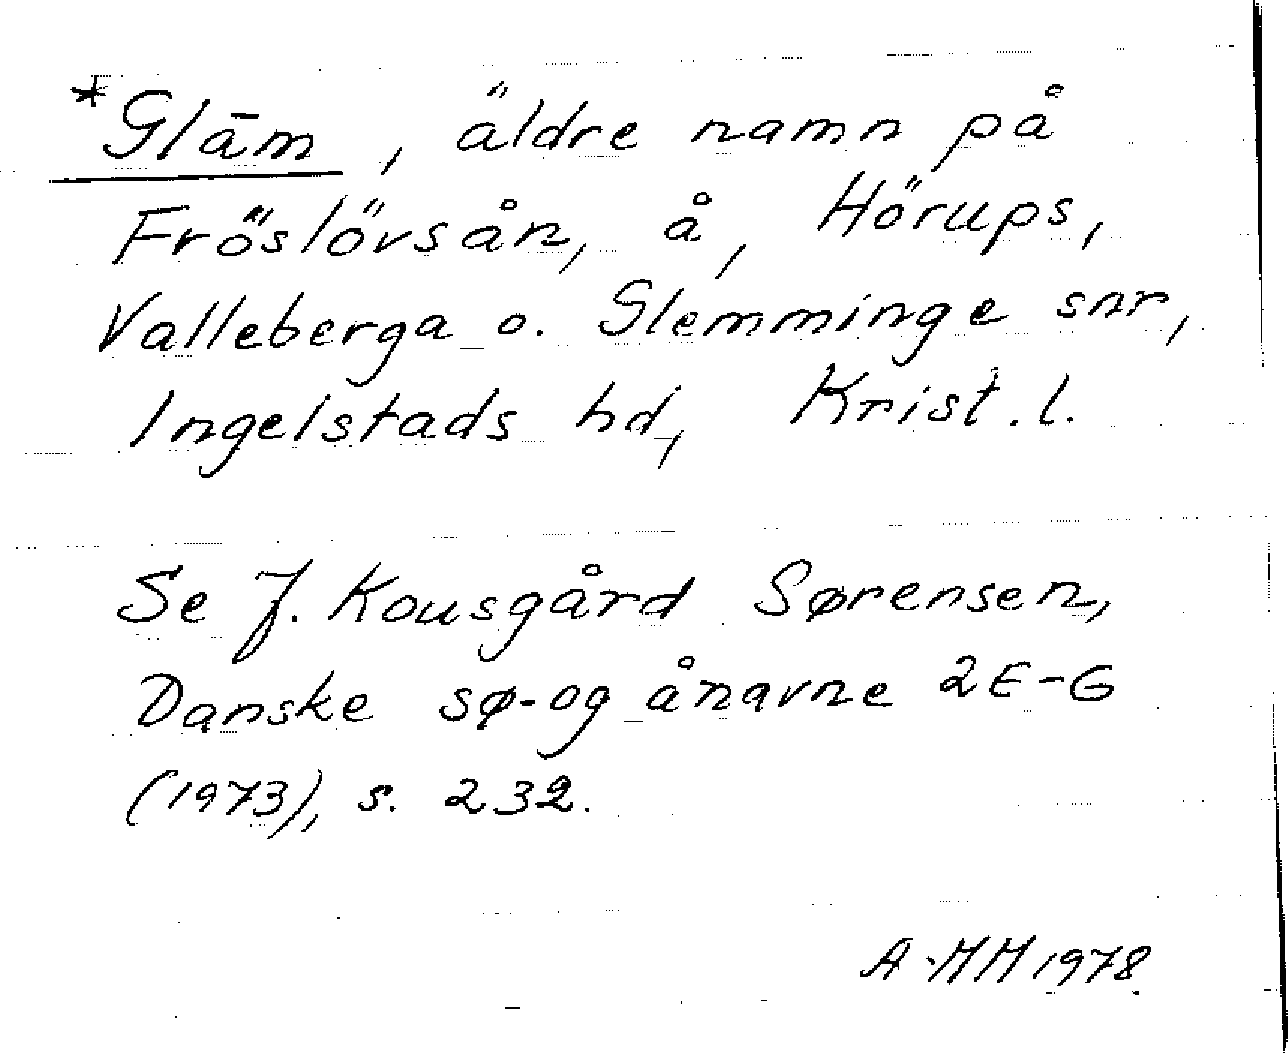 *Glām, äldre namn på
Fröslövsån, å, Hörups,
Valleberga o. Glemminge snr,
Ingelstads hd, Krist. l.
Se J. Kousgård Sørensen,
Danske sø- og ånavne 2 E-G
(1973), s. 232.
A-MH 1978